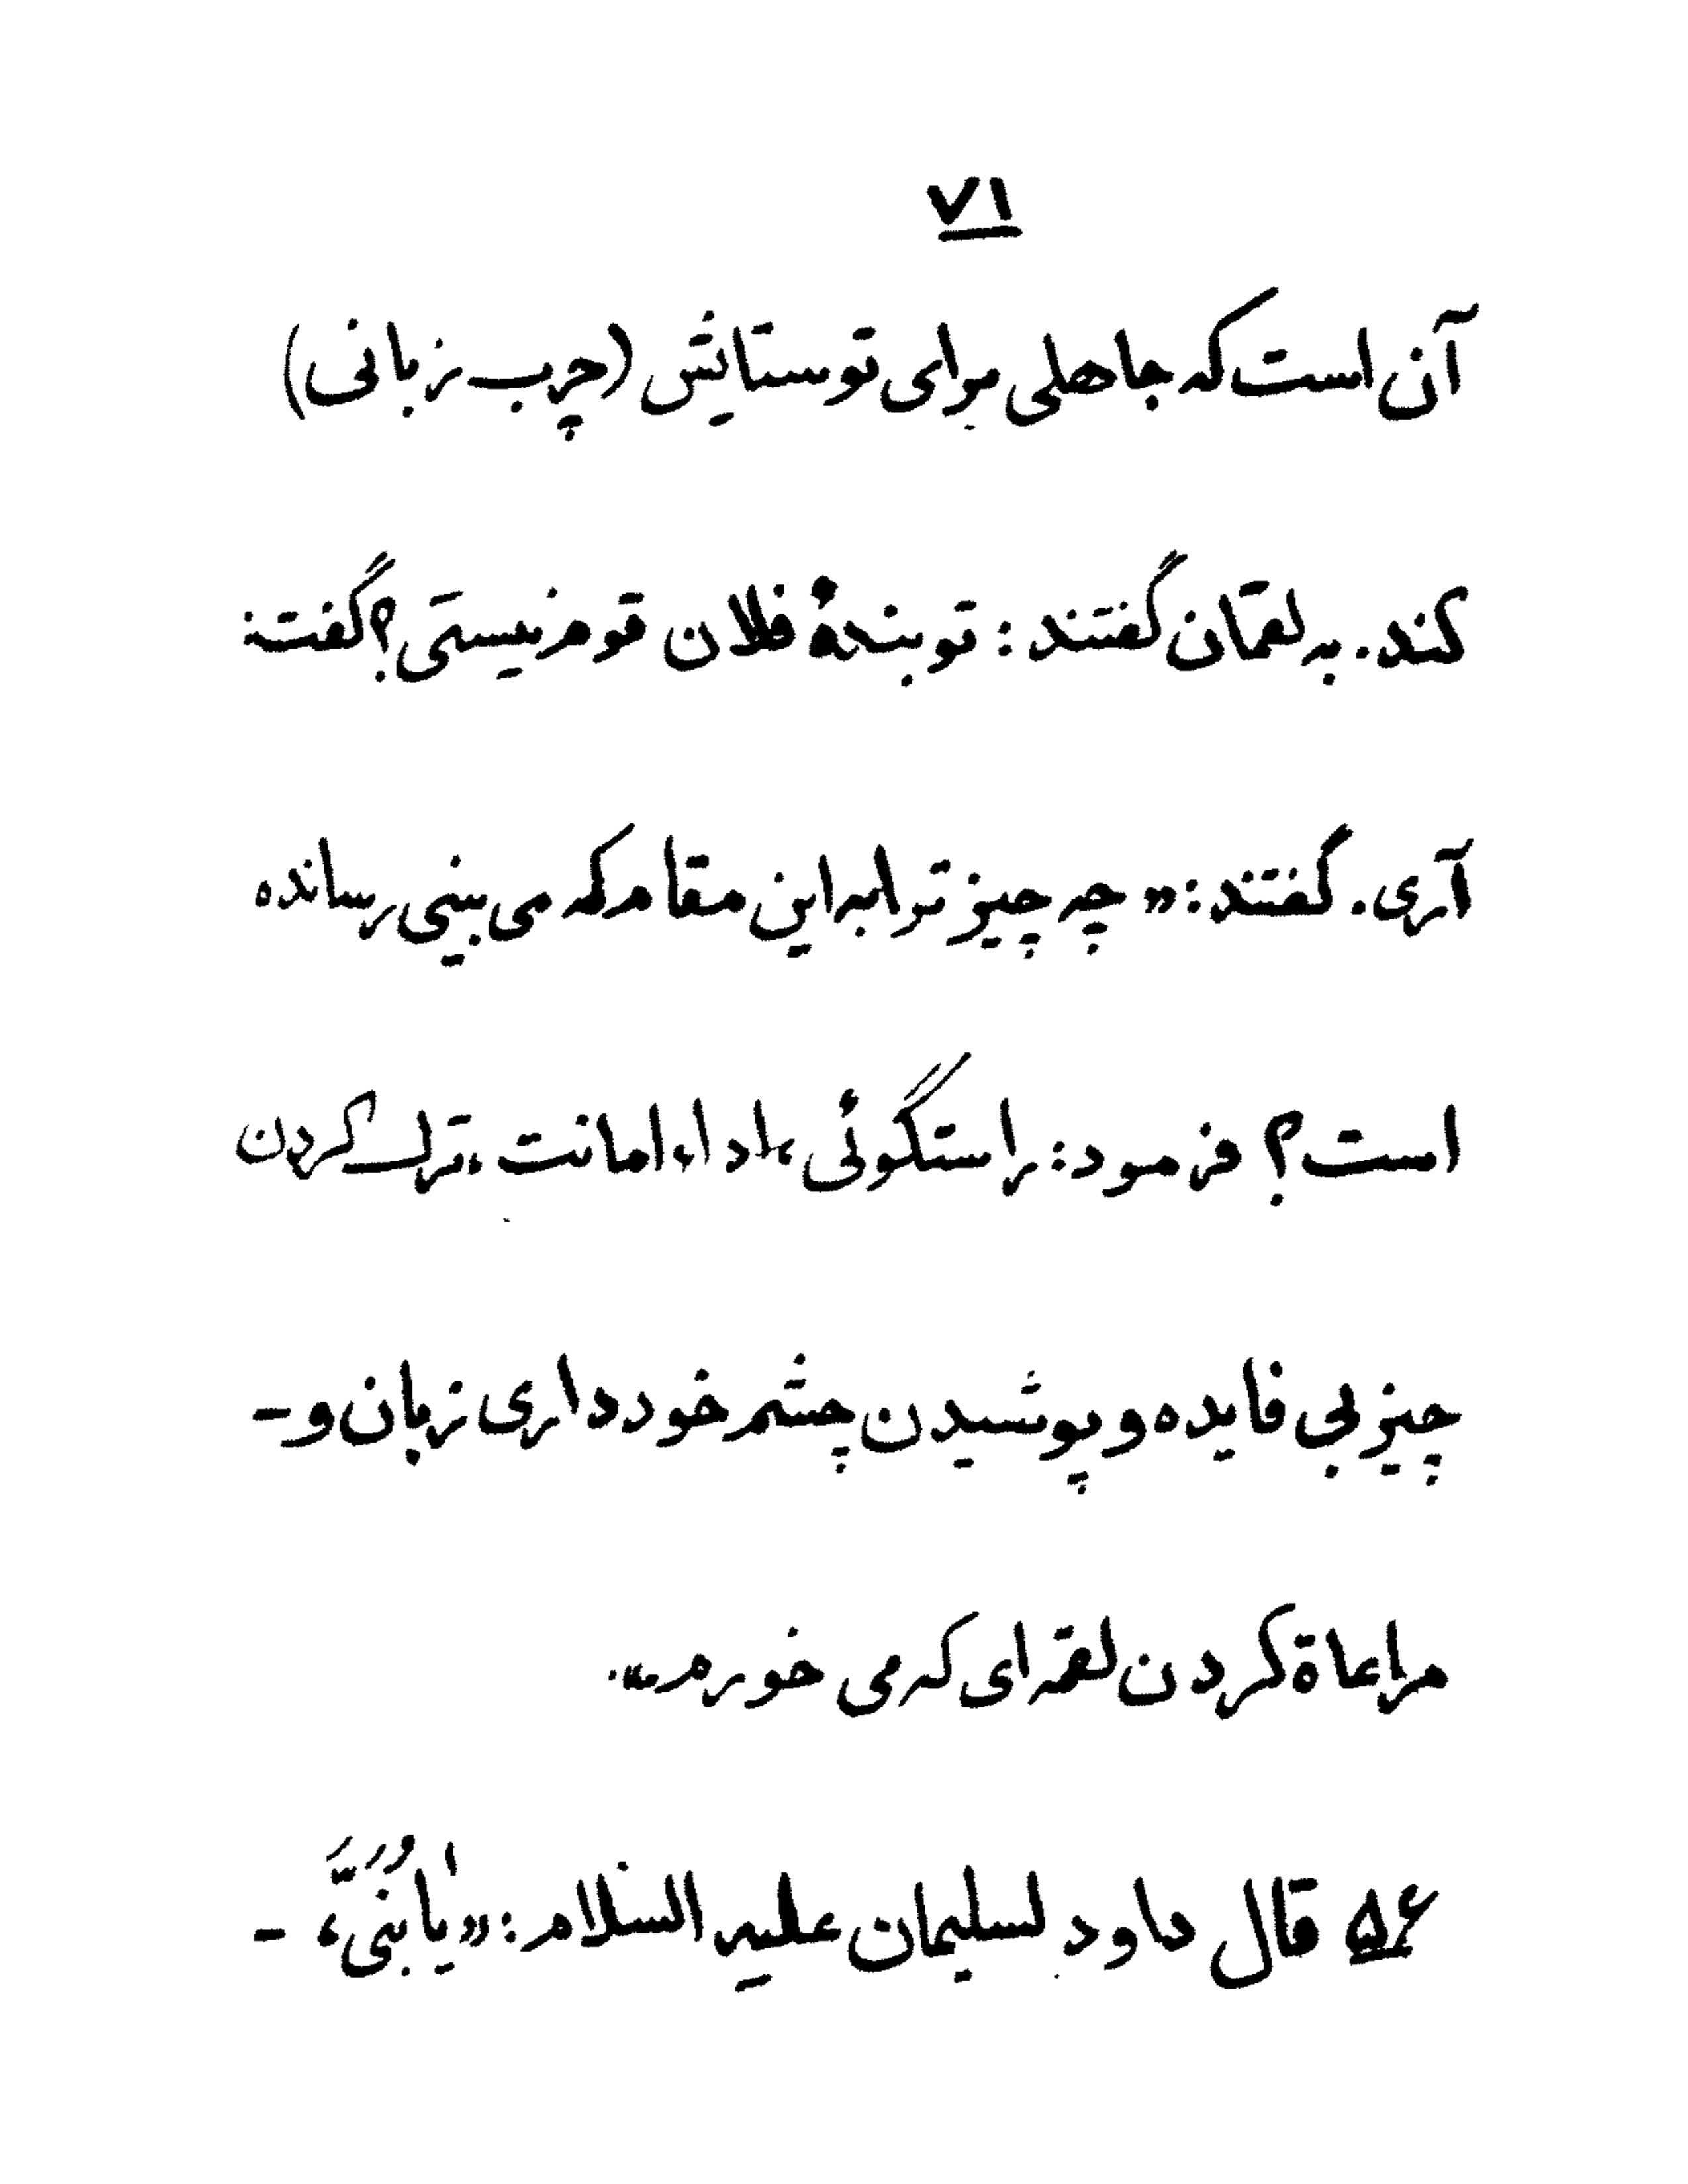 ۷۱
آن است که جاهلی برای تو ستایش (چرب زبانی)
کند. به لقمان گفتند: تو بندهٔ فلان قوم نیستی؟ گفت:
آری. گفتند: «چه چیز ترا به این مقام که می بینی رسانده
است؟ فرمود: راستگوئی، اداء امانت، ترک کردن
چیز بی فایده و پوشیدن چشم خودداری زبان و-
مراعاة کردن لقمه ای که می خورم».
۵۶ قال داود لسلیمان علیه السلام: «یا بُنَیَّ، -